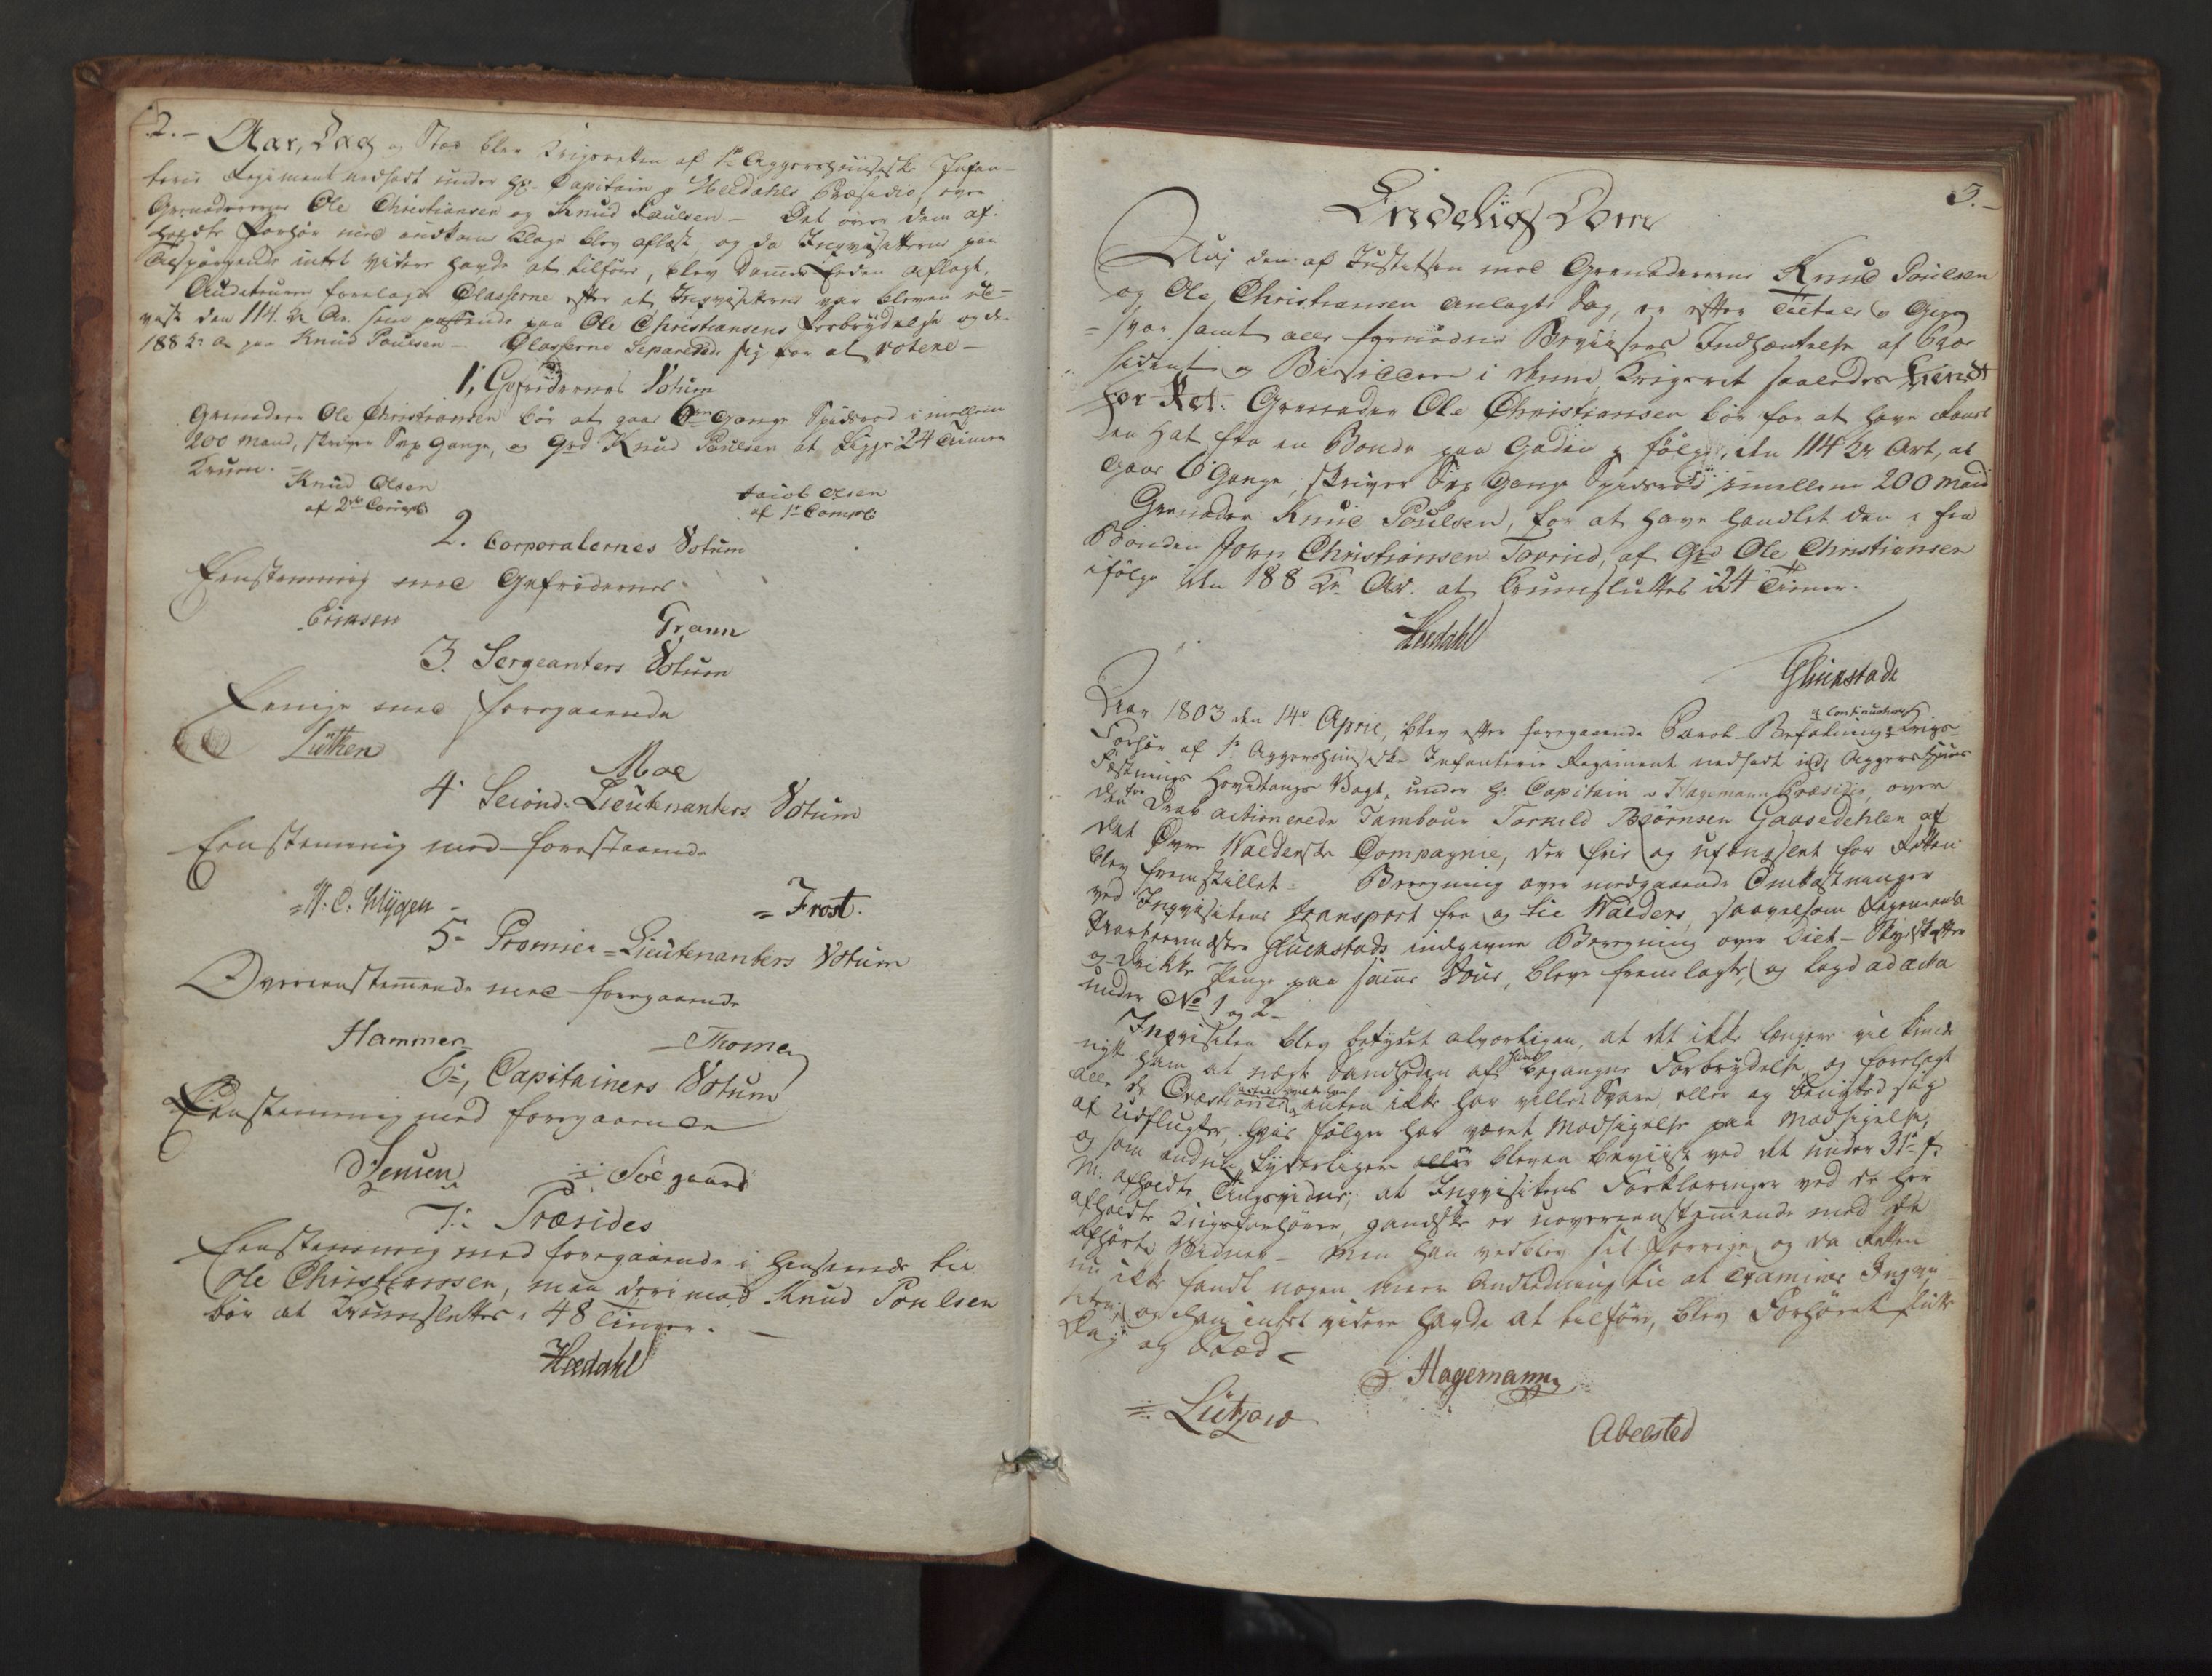 2.-
Aar, Dag og Sted blev Krigsretten af 1te Aggershuusiske Infan-
terie Regiment nedsadt under Hr. Capitain v Heedahls Præsidio, over
Grenadererne Ole Christiansen og Knud Poulsen - Det over dem af-
holdte Forhør med indkomne Klage blev oplæst, og da Inqvisiterne paa
Tilspørgende intet videre havde at tilføre, blev Dommer Eeden aflagt.
Auditeuren forelagde Classerne efter at Inqvisiterne var bleven ud-
viist den 114 Kr. Ar. som passende paa Ole Christiansens Forbrydelse og den
188 Kr. A. paa Knud Poulsen - Classerne Separerede sig for at votere -
1, Gefridernes Votum
Grenadeer Ole Christiansen bør at gaae 6 Gange Spidsrod imellem
200 Mand, skriver Sex Gange, og Grd Knud Poulsen at ligge 24 Timer
Krum. -
Knud Olsen
af 2det Comp
Jacob Olsen
af 1te Comp
2. Corporalernes Votum
Eenstemmig med Gefridernes.
Eriksen
Grann
3. Sergeanters Votum
Eenige med foregaaende
Lütken
Moe
4. Second-Lieutenanters Votum
Eenstemmig med forestaaende
N: C: Mygen
Frost.
5- Premier-Lieutenanters Votum
Overeenstemmende med foregaaende
Hammer
Thome
6te, Capitainers Votum
Eenstemmig med foregaaende
Jensen
Søegaard
7: Præsides
Eenstemmig med foregaaende i Henseende til
Ole Christiansen, men derimod Knud Poulsen
bør at krumsluttes i 48 Timer. -
Heedahl
3.-
Endelig Dom
Udi den af Justitsen mod Grenadererne Knud Poulsen
og Ole Christiansen anlagte Sag, er efter Tiltale og Gien-
svar samt alle fornødne Beviisers Indhæntelse af Præ-
sident og Bisiddere i denne Krigsret saaledes Kiendt
for Ret. Grenadeer Ole Christiansen bør for at have ranet
en Hat fra en Bonde paa Gaden i følge den 114 Kr Art, at
gaae 6 Gange, skriver Sex Gange Spidsrod imellem 200 Mand
Grenadeer Knud Poulsen, for at have handlet den fra
Bonden Joen Christiansen Torrud, af Grd Ole Christiansen
ifølge den 188 Kr Ar. at krumsluttes i 24 Timer.
Heedahl
Glückstadt
Aar 1803 den 14de April, blev efter foregaaende Parol-Befaling og Continuations Krigs-
Forhør af 1te Aggershuusiske Infanterie Regiment nedsadt udi Aggershuus
Fæstnings Hovedtangs Vagt, under Hr. Capitain v Hagemanns Præsidio, over
den for Drab actionerede Tambour Torkild Biørnsen Gaasedehlen af
det Øvre Walderske Compagnie, der frie og ufængslet for Retten
blev fremstillet. Beregning over medgaaende Omkostninger
ved Inqvisitens Transport fra og til Walders, saavelsom Regiments
Qvarteermester Glückstads indgivne Beregning over Diet-Skyds
og Drikke Penge paa samme Tour, bleve fremlagte, og lagd ad acta
under No 1 og 2 -
Inqvisiten blev betydet alvorligen, at det ikke længere vil kunde
nytte ham at nægte Sandheden af hans begangne Forbrydelse, og forelagt
alle de Qvæstioner, enten ikke har villet Svare, eller og benyttet sig
af Udflugter, hvis Følge har været Modsigelse paa Modsigelse,
og som endnu tyderligere bleven beviist ved det under 31te f:
M: afholdte Tingsvidne; at Inqvisitens Forklaringer ved de her
afholdte Krigsforhører, gandske er uovereenstemmende med de
afhørte Vidner - men han vedblev sit forrige, og da Retten
nu ikke fandt nogen meere Anledning til at examinere Inqvi-
siten, og han intet videre havde at tilføre, blev Forhøret slutt.
Dag og Stæd.
Hagemann
Lützow
Abelsted